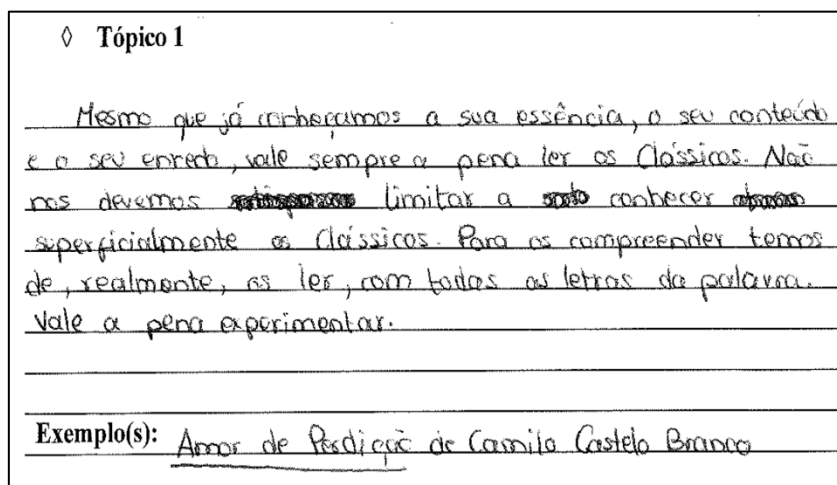 ◊ Tópico 1
Mesmo que já conheçamos a sua essência, o seu conteúdo
e o seu enredo, vale sempre a pena ler os Clássicos. Não
nos devemos limitar a conhecer
superficialmente os Clássicos. Para os compreender temos
de, realmente, os ler, com todas as letras da palavra.
Vale a pena experimentar.
Exemplo(s): Amor de Perdição de Camilo Castelo Branco